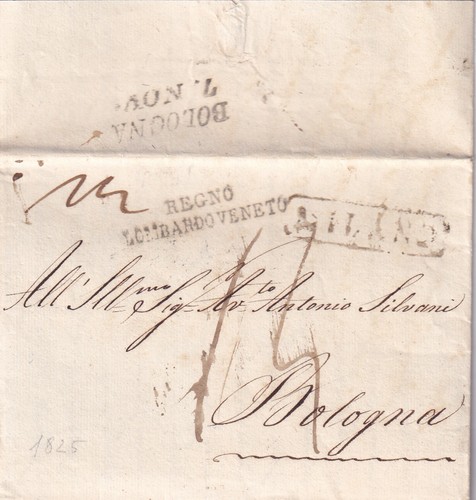 7. NOV.
BOLOGNA
REGNO
LOMBARDOVENETO
MILANO
14
All' Ill.mo Sig.r Av.to Antonio Silvani
Bologna
1825